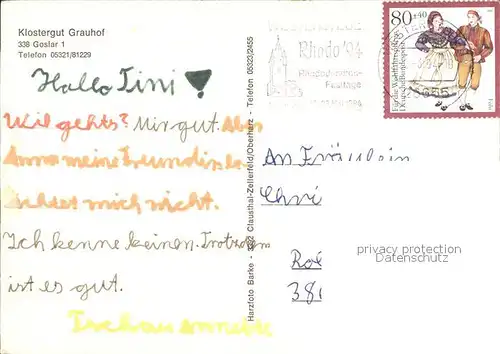 Klostergut Grauhof
338 Goslar 1
Telefon 05321/81229
Hallo Tini
Wil gehts? Mir gut. Aber
Anna meine Freundin
mich nicht.
Ich kenne keinen. Trotzdem
ist es gut.
Harzfoto Barke - Clausthal-Zellerfeld/Oberharz - Telefon 05323/2455
Rhodo '94
80+40
Für die Wohlfahrtspflege
An Fräulein
Chri
privacy protection
Datenschutz
38